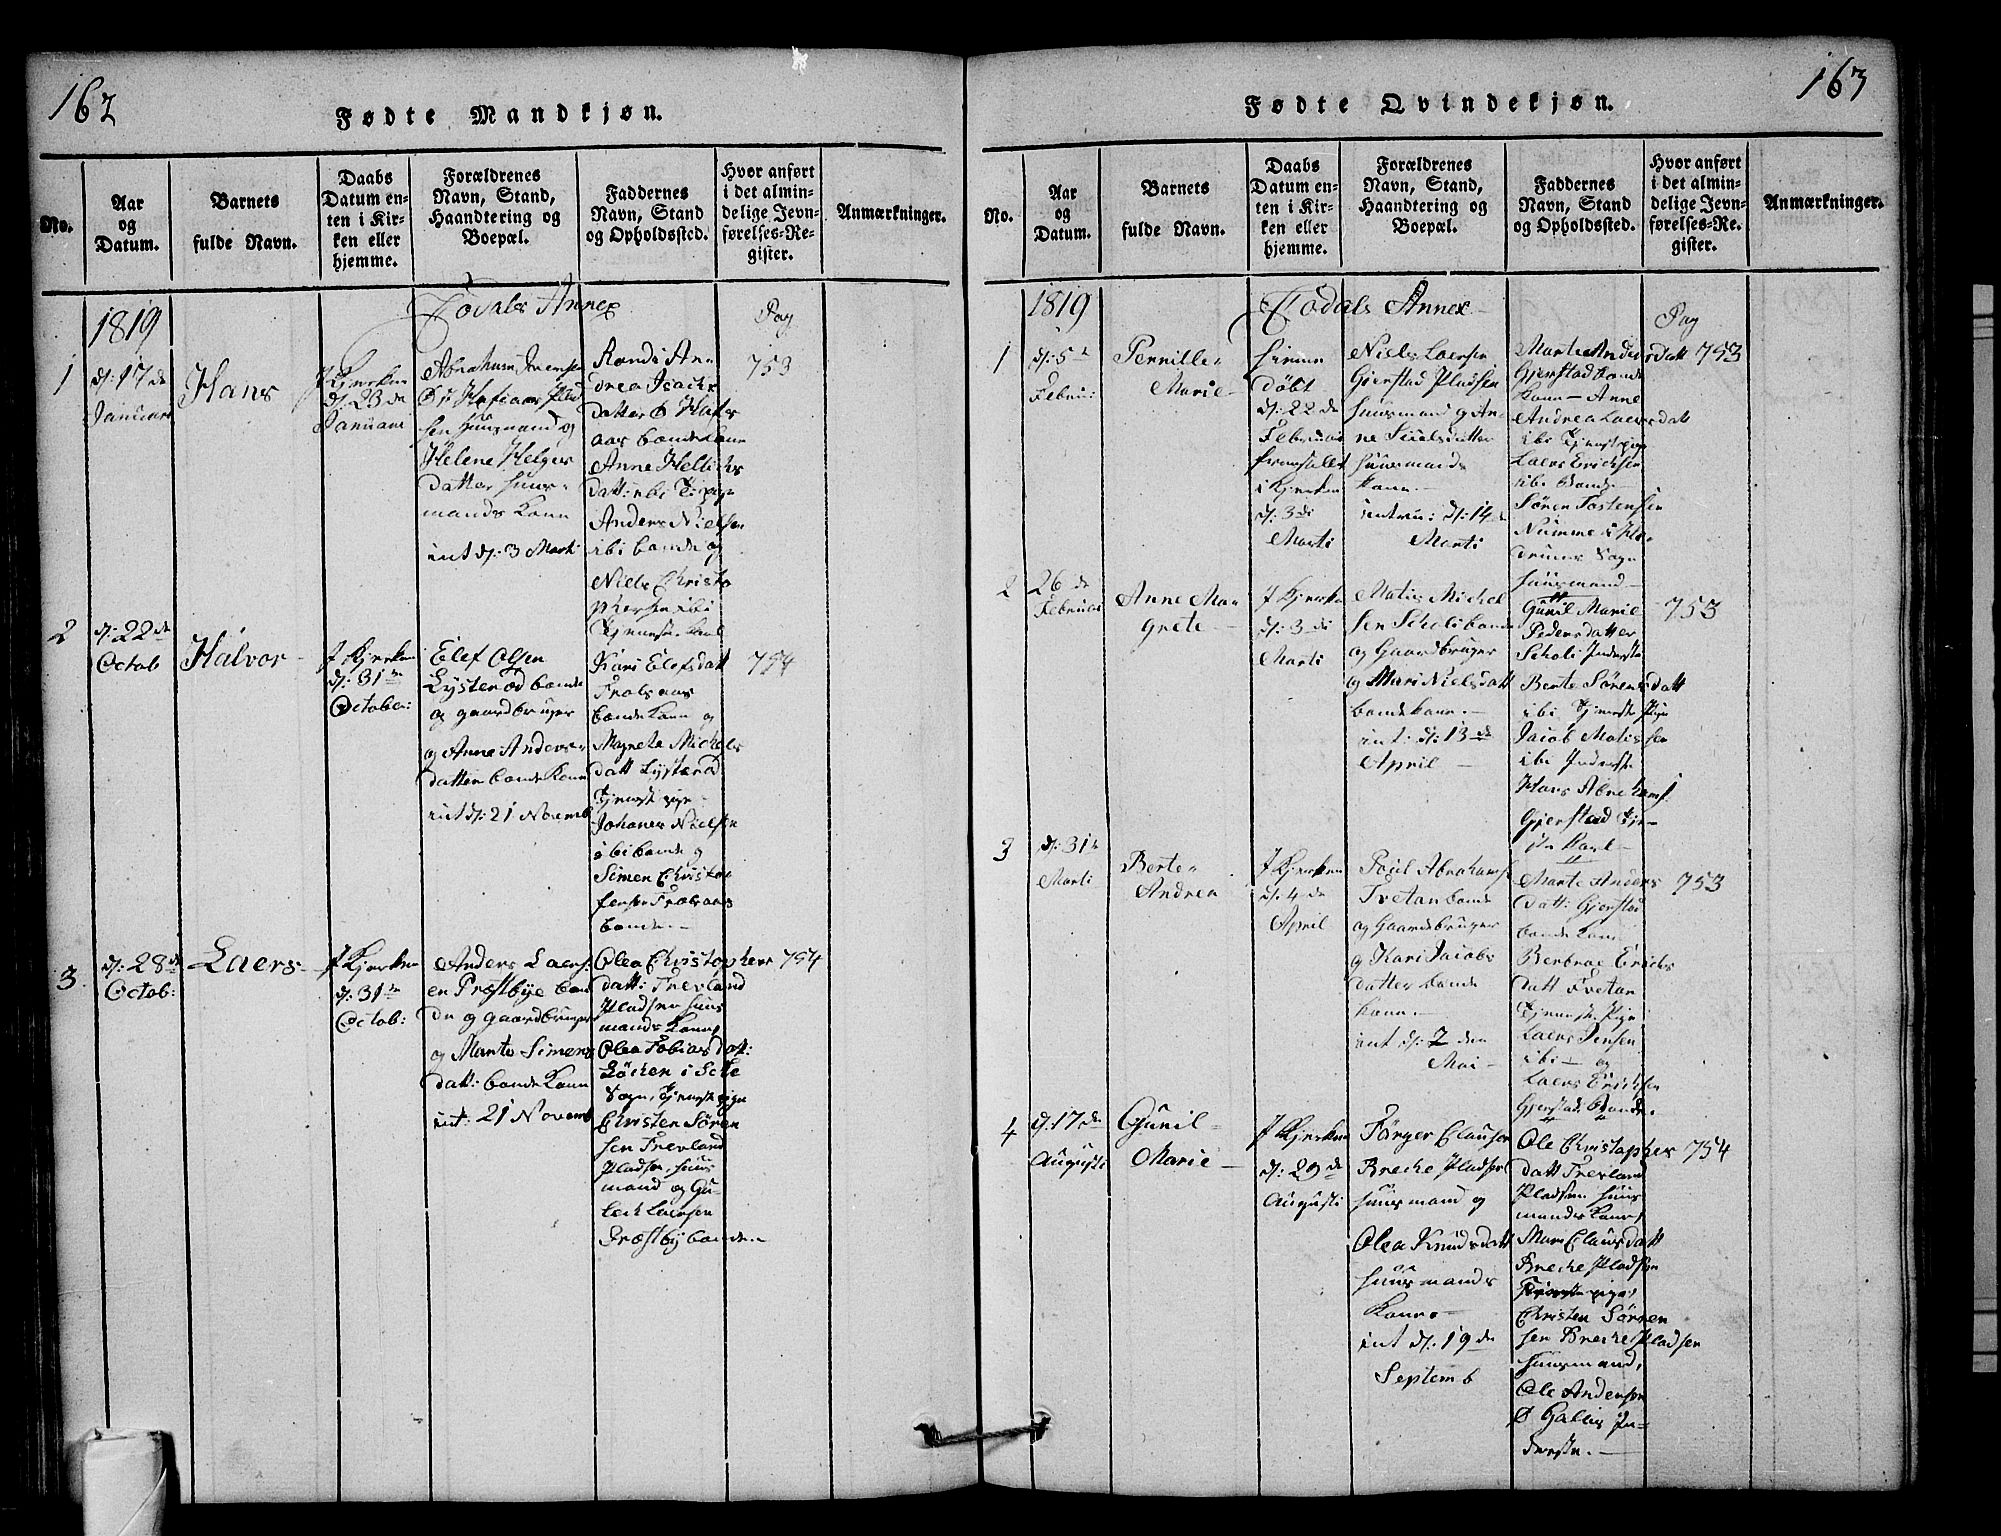 162
Fødte Mandkjøn.
No.
Aar
og
Datum.
Barnets
fulde Navn.
Daabs
Datum en-
ten i Kir-
ken eller
hjemme.
Forældrenes
Navn, Stand,
Haandtering og
Boepæl.
Faddernes
Navn, Stand
og Opholdssted.
Hvor anført
i det almin-
delige Jevn-
førelses-Re-
gister.
Anmærkninger.
1819
Todals Annex
Pag
1
d: 17 de
Januari
Hans
I Kjerken
d: 23 de
Januari
Abraham
Huusmand og
Helene Helges
datter huus-
mands Kone
int d: 3 Marti
Rondi An-
drea Isachs
datter Ø Hafs
aas bonde Kone
Anne Hellichs
datt: ibi
Anders Nielsen
ibi bonde og
Niels Christo
phersen ibi
753
2
d: 22 de
Octob
Halvor
I Kjerken
d: 31 te
October:
Elef Olsen
Lysterød bonde
og gaardbruger
og Anne Anders-
datter bonde Kone
int d: 21 Novemb
Kari Elefsdatt
bonde Kone og
Magrete Michels
datt Lysterød
Tjenest pige
Johanes Nielsen
ibi bonde og
Simen Christo
fersen
bonde
754
3
d: 28 de
Octob:
Laers
I Kjerken
d: 31 te
Octob:
Anders Laers
en Præstbye bon
de og gaardbruger
og Marte Simens
datt: bonde Kone
int: 21 Novemb
Olea Christophers
datt: Trevland
Pladsen huus
mands Kone,
Olea Tobias datt:
Sogn, Tjenest pige
Christen Søren
sen Trevland
Pladsen, huus
mand og Gu-
Laersen
Præstby bonde
754
163
Fødte Qvindekjøn.
No.
Aar
og
Datum.
Barnets
fulde Navn.
Daabs
Datum en-
ten i Kir-
ken eller
hjemme.
Forældrenes
Navn, Stand,
Haandtering og
Boepæl.
Faddernes
Navn, Stand
og Opholdssted.
Hvor anført
i det almin-
delige Jevn-
førelses-Re-
gister.
Anmærkninger.
1819
Todals Annex
Pag
1
d: 5 te
Februi:
Pernille
Marie
hieme
døbt
d: 22 de
Februari
fremstillet
i Kjerken
d: 3 di
Marti
Niels Laersen
Gjerstad Pladsen
huusmand og An-
ne Siulsdatter
huusmands
Kone
intru: d: 14 de
Marti
Marte Anders datt
Gjerstad bonde
Kone - Anne
Andrea Laers datt
ibi Tjenst pige
Laers Erichsen
ibi Bonde
Søren Tostensen
Sogn
huusmand
753
2
26 de
Februari
Anne Ma-
grete
I Kjerken
d: 3 di
Marti
Matis Michel
sen Scholi bonde
og Gaardbruger
og Mari Nielsdatt
bonde kone.
int: d: 13 de
April
Gunil Marie
Pedersdatter
Scholi Inderste
Berte Sørens datt
ibi Tjenste pige
Jacob Matis sen
ibi Inderste
Hans Abrahams:
Gjerstad Tje-
ste Karl
753
3
d: 31 te
Marti
Berte
Andrea
I Kjerken
d: 4 de
April
Poul Abrahams
Tvetan bonde
og Gaardbruger
og Kari Jacobs
datter bonde
kone.
int d: 2 den
Mai
Marte Anders
datt: Gjerstad
bonde Kone
Berbroe Erichs
datt Tvetan
Tjeneste Pige
Laers Jensen
ibi og
Laers Erichsen
Gjerstad Bonde.
753
4
d. 17 de
Augusti
Gunil
Marie
I Kjerken
d: 29 de
Augusti
Jørger Clausen
Breche Pladsen
huusmand og
Olea Knudsdatt
huusmands
Kone
int d: 19 de
Septemb
Ole Christophers
datt Trevland
Pladsen huus
mands Kone,
Mari Clausdatt
Breche Pladsen
Tienste pige,
Christen Søren
sen Breche Pladsen
huusmand,
Ole Andersen
Ø Galles In-
derste.
754